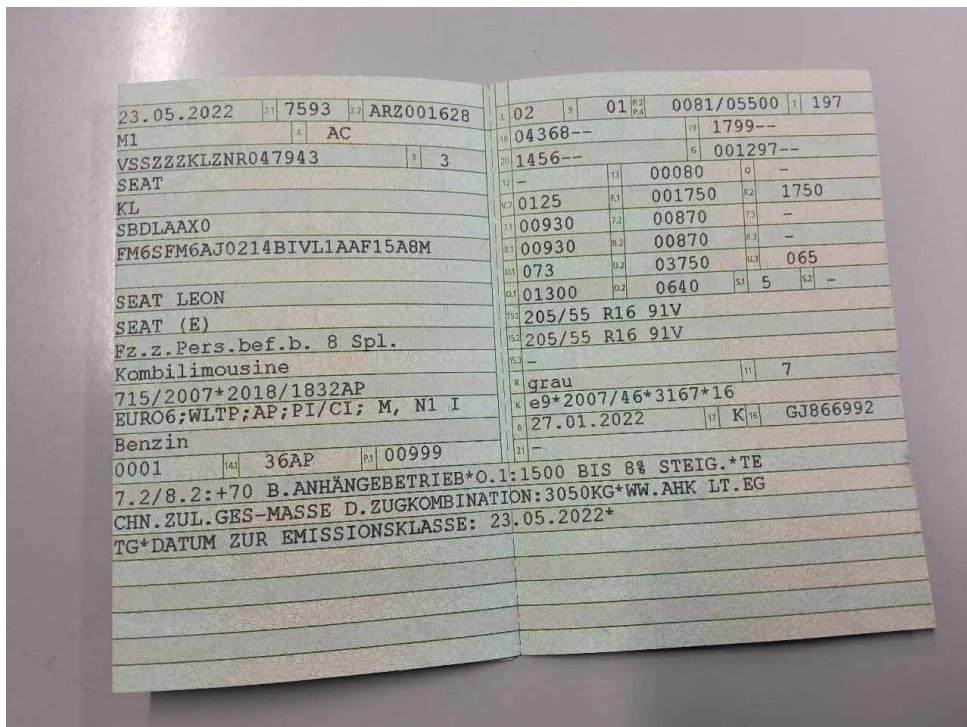 23.05.2022 2.1 7593 2.2 ARZ001628
M1 4 AC
VSSZZZKLZNR047943 3 3
SEAT
KL
SBDLAAX0
FM6SFM6AJ0214BIVL1AAF15A8M
SEAT LEON
SEAT (E)
Fz.z.Pers.bef.b. 8 Spl.
Kombilimousine
715/2007*2018/1832AP
EURO6;WLTP;AP;PI/CI; M, N1 I
Benzin
0001 14.1 36AP P.1 00999
L 02 9 01 P.2 P.4 0081/05500 T 197
18 04368-- 19 1799--
20 1456-- G 001297--
12 - 13 00080 Q -
V.7 0125 F.1 001750 F.2 1750
7.1 00930 7.2 00870 7.3 -
8.1 00930 8.2 00870 8.3 -
U.1 073 U.2 03750 U.3 065
O.1 01300 O.2 0640 S.1 5 S.2 -
15.1 205/55 R16 91V
15.2 205/55 R16 91V
15.3 -
R grau 11 7
K e9*2007/46*3167*16
6 27.01.2022 17 K 16 GJ866992
21 -
7.2/8.2:+70 B.ANHÄNGEBETRIEB*O.1:1500 BIS 8% STEIG.*TE
CHN.ZUL.GES-MASSE D.ZUGKOMBINATION:3050KG*WW.AHK LT.EG
TG*DATUM ZUR EMISSIONSKLASSE: 23.05.2022*